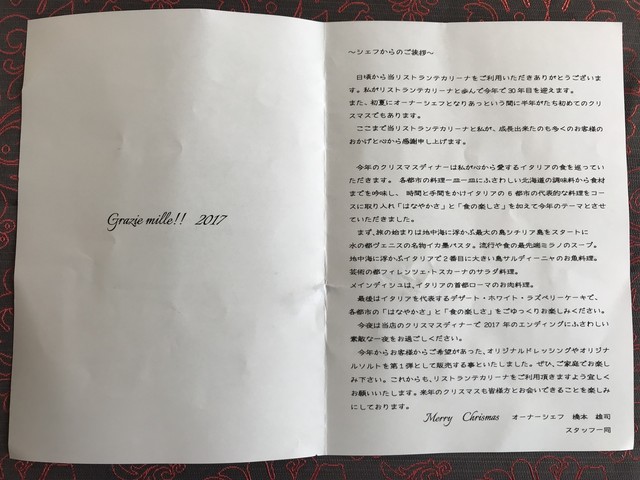 Grazie mille!! 2017
～シェフからのご挨拶～
日頃から当リストランテカリーナをご利用いただきありがとうございま
す。私がリストランテカリーナと歩んで今年で30年目を迎えます。
また、初夏にオーナーシェフとなりあっという間に半年がたち初めてのクリ
スマスでもあります。
ここまで当リストランテカリーナと私が、成長出来たのも多くのお客様の
おかげと心から感謝申し上げます。
今年のクリスマスディナーは私が心から愛するイタリアの食を巡ってい
ただきます。 各都市の料理一皿一皿にふさわしい北海道の調味料から食材
までを吟味し、 時間と手間をかけイタリアの 6 都市の代表的な料理をコー
スに取り入れ「はなやかさ」と「食の楽しさ」を加えて今年のテーマとさせ
ていただきました。
まず、旅の始まりは地中海に浮かぶ最大の島シチリア島をスタートに
水の都ヴェニスの名物イカ墨パスタ。流行や食の最先端ミラノのスープ。
地中海に浮かぶイタリアで2番目に大きい島サルディーニャのお魚料理。
芸術の都フィレンツェ・トスカーナのサラダ料理。
メインディシュは、イタリアの首都ローマのお肉料理。
最後はイタリアを代表するデザート・ホワイト・ラズベリーケーキで、
各都市の「はなやかさ」と「食の楽しさ」をごゆっくりお楽しみください。
今夜は当店のクリスマスディナーで 2017 年のエンディングにふさわしい
素敵な一夜をお過ごしください。
今年からお客様からご希望があった、オリジナルドレッシングやオリジナ
ルソルトを第1弾として販売する事といたしました。ぜひ、ご家庭でお楽し
み下さい。これからも、リストランテカリーナをご利用頂きますよう宜しく
お願いいたします。来年のクリスマスも皆様方とお会いできることを楽しみ
にしております。
Merry Chrismas オーナーシェフ 橋本 雄司
スタッフ一同